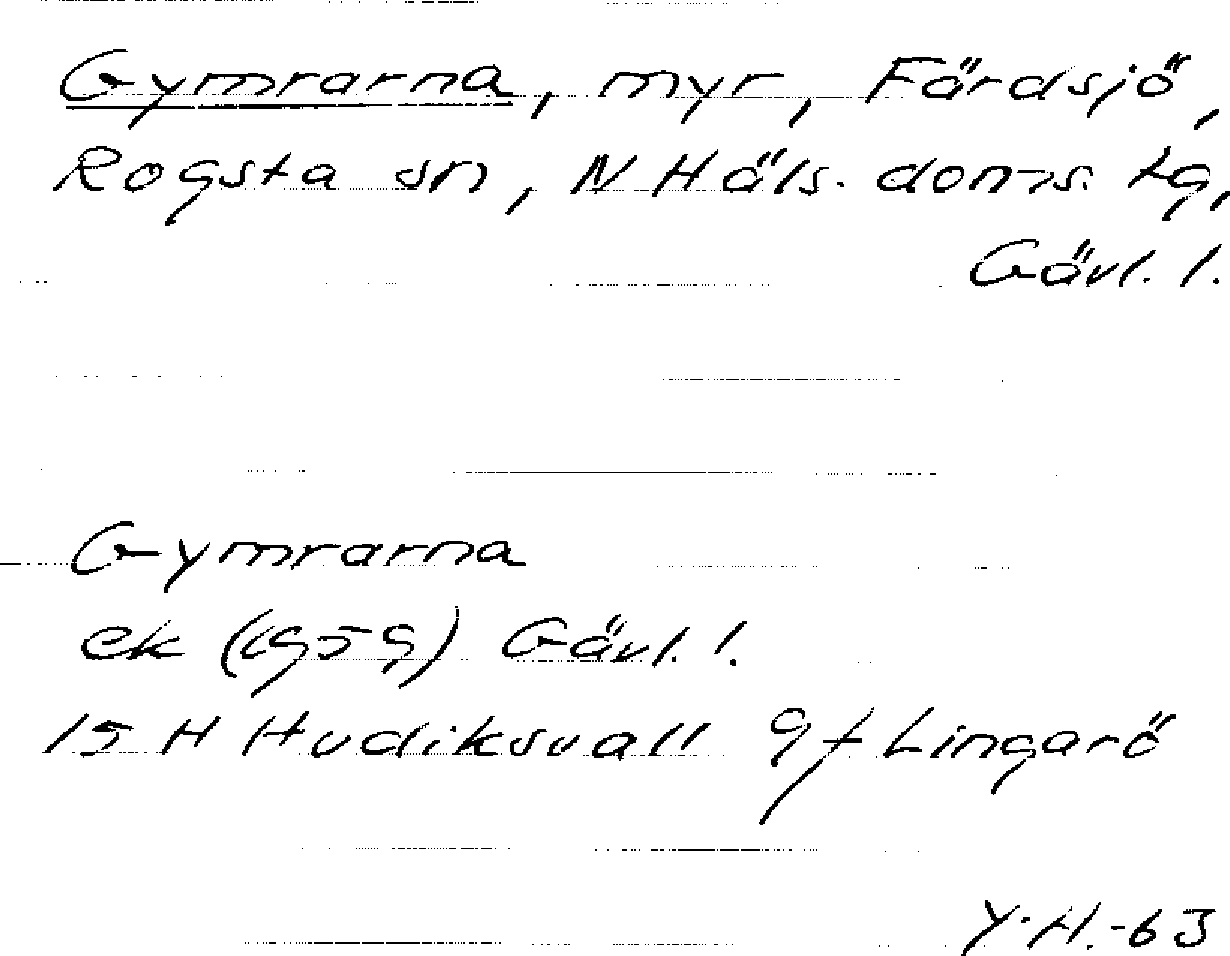 Gymrarna, myr, Färdsjö,
Rogsta sn, N Häls. doms. tg,
Gävl. l.
Gymrarna
ek (1959) Gävl. l.
15 H Hudiksvall 9f Lingarö
Y.H.-63